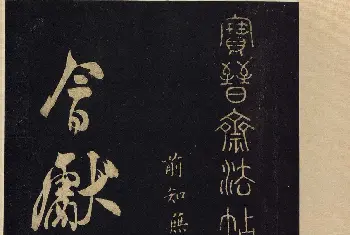 寶晉齋法帖
前知無
會獻